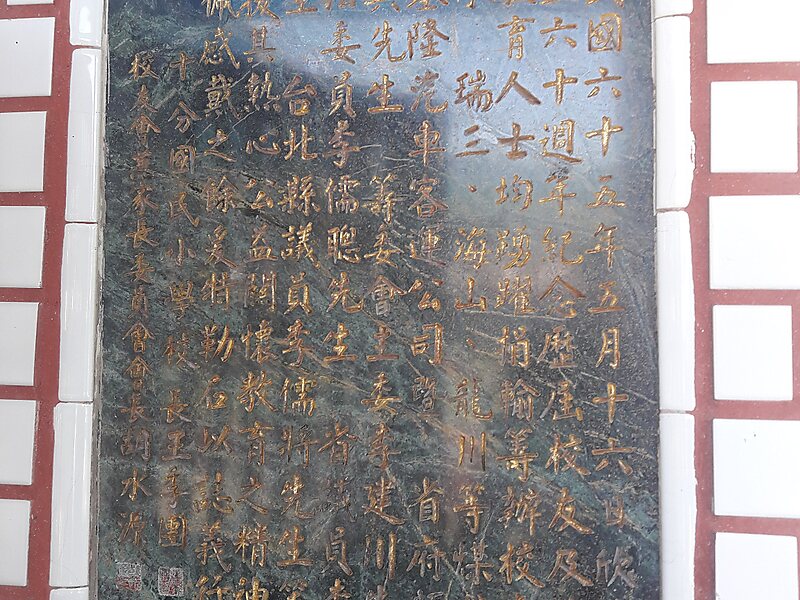 國六十五年五月十六日欣
六十週年紀念歷屆校友及
育人士均踴躍捐輸籌辦校
瑞三、海山、龍川等煤
隆汽車客運公司暨 省府
先生 籌委會主委李建川
委員李儒聰先生 省議員李
台北縣議員李儒將先生等
其熱心公益關懷教育之精神
感戴之餘爰特勒石以誌義行
十分國民小學校長王季團
校友會暨家長委員會會長胡水源